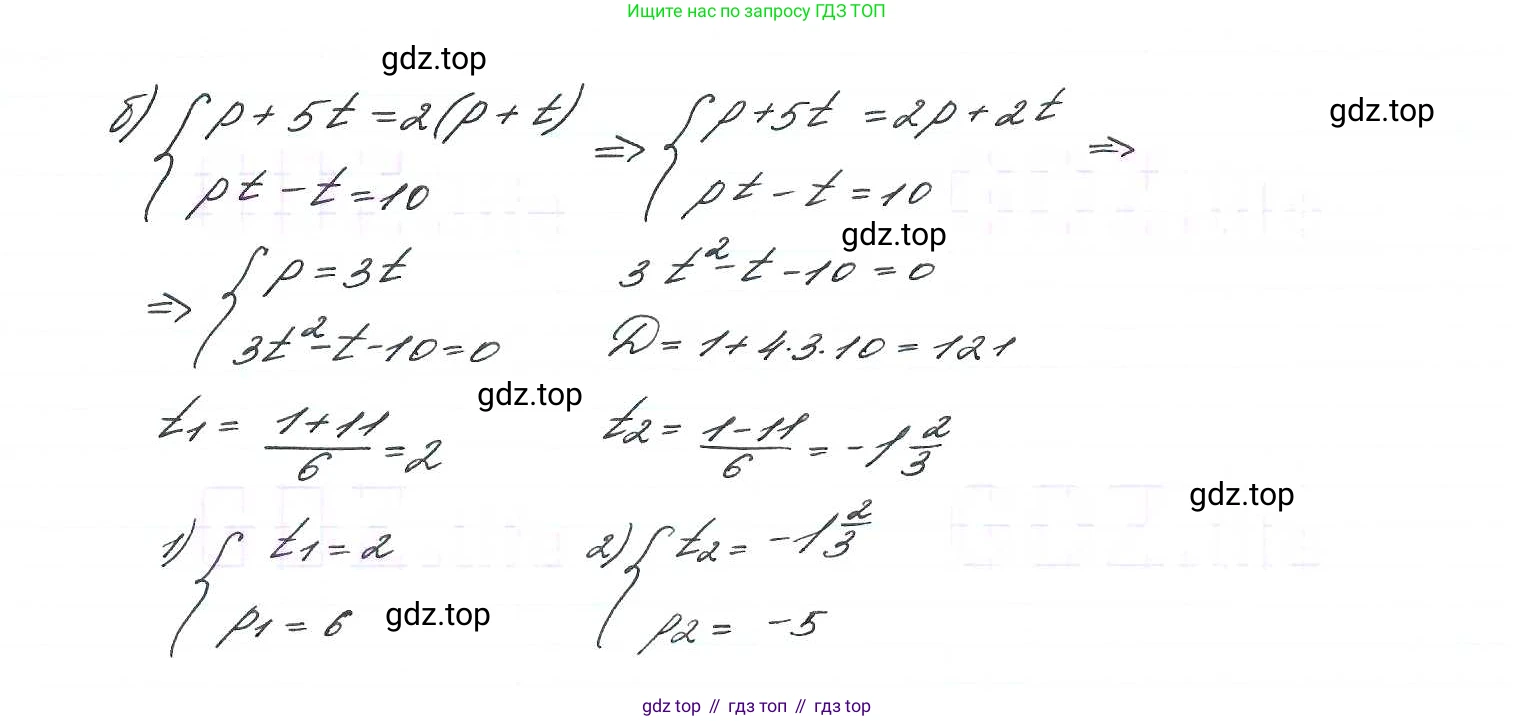 Ищите нас по запросу ГДЗ ТОП
gdz.top
б) { p + 5t = 2(p + t) ⇒ { p + 5t = 2p + 2t ⇒
gdz.top
pt - t = 10 pt - t = 10
gdz.top
⇒ { p = 3t 3t² - t - 10 = 0
3t² - t - 10 = 0 D = 1 + 4·3·10 = 121
gdz.top
t₁ = (1+11)/6 = 2 t₂ = (1-11)/6 = -1 2/3
gdz.top
1) { t₁ = 2 2) { t₂ = -1 2/3
p₁ = 6 gdz.top p₂ = -5
gdz top // гдз топ // гдз top